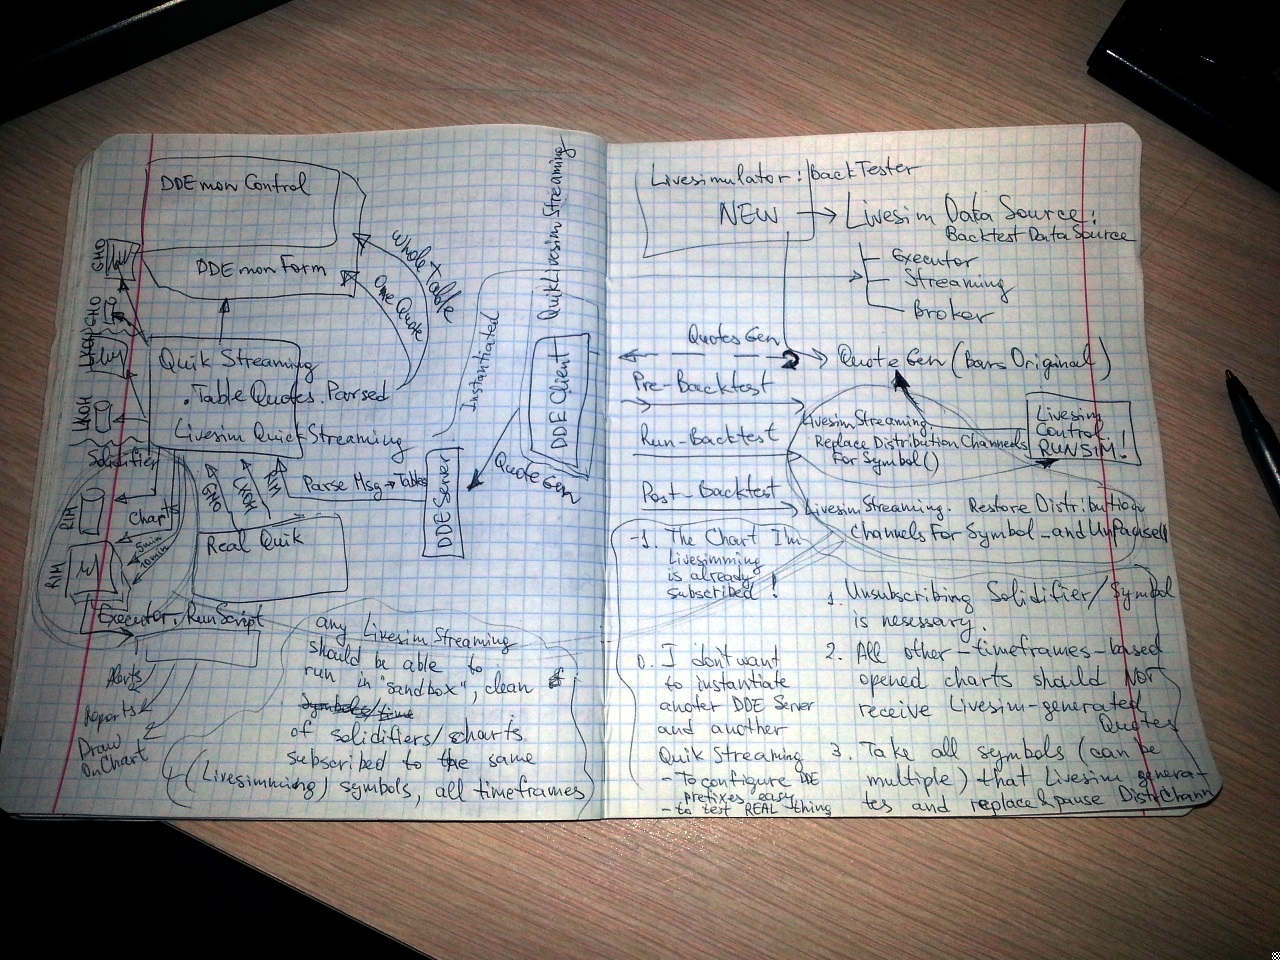 DDE mon Control
DDE mon Form
Whole table
One Quote
GMO
GMO
LKOH
LKOH
Quik Streaming
. Table Quotes. Parsed
Livesim QuickStreaming
Solidifier
RIM
Charts
5min
10min
RIM
GMO
LKOH
RIM
Parse Msg → Tables
Real Quik
Executor. RunScript
Alerts
Reports
Draw
OnChart
DDE Server
Instantiated
DDE Client
QuikLivesim Streaming
Quote Gen
any Livesim Streaming
should be able to
run in "sandbox", clean
Symbols/time
of solidifiers/charts
subscribed to the same
(Livesimming) symbols, all timeframes
Livesimulator : backTester
NEW → Livesim Data Source:
Backtest Data Source
Executor
Streaming
Broker
Quotes Gen
Quote Gen (bars Original)
Pre-Backtest
Run-Backtest
Post-Backtest
Livesim Streaming.
Replace Distribution Channels
For Symbol()
Livesim
Control
RUNSIM!
Livesim Streaming. Restore Distribution
Channels For Symbol_and UnPaused
-1. The Chart I'm
Livesimming
is already
subscribed!
0. I don't want
to instantiate
anoter DDE Server
and another
Quik Streaming
- To configure DDE
prefixes easy
- to test REAL thing
1. Unsubscribing Solidifier/Symbol
is nesessary.
2. All other-timeframes-based
opened charts should NOT
receive Livesim-generated
Quotes
3. Take all symbols (can be
multiple) that Livesim genera-
tes and replace & pause DistrChann